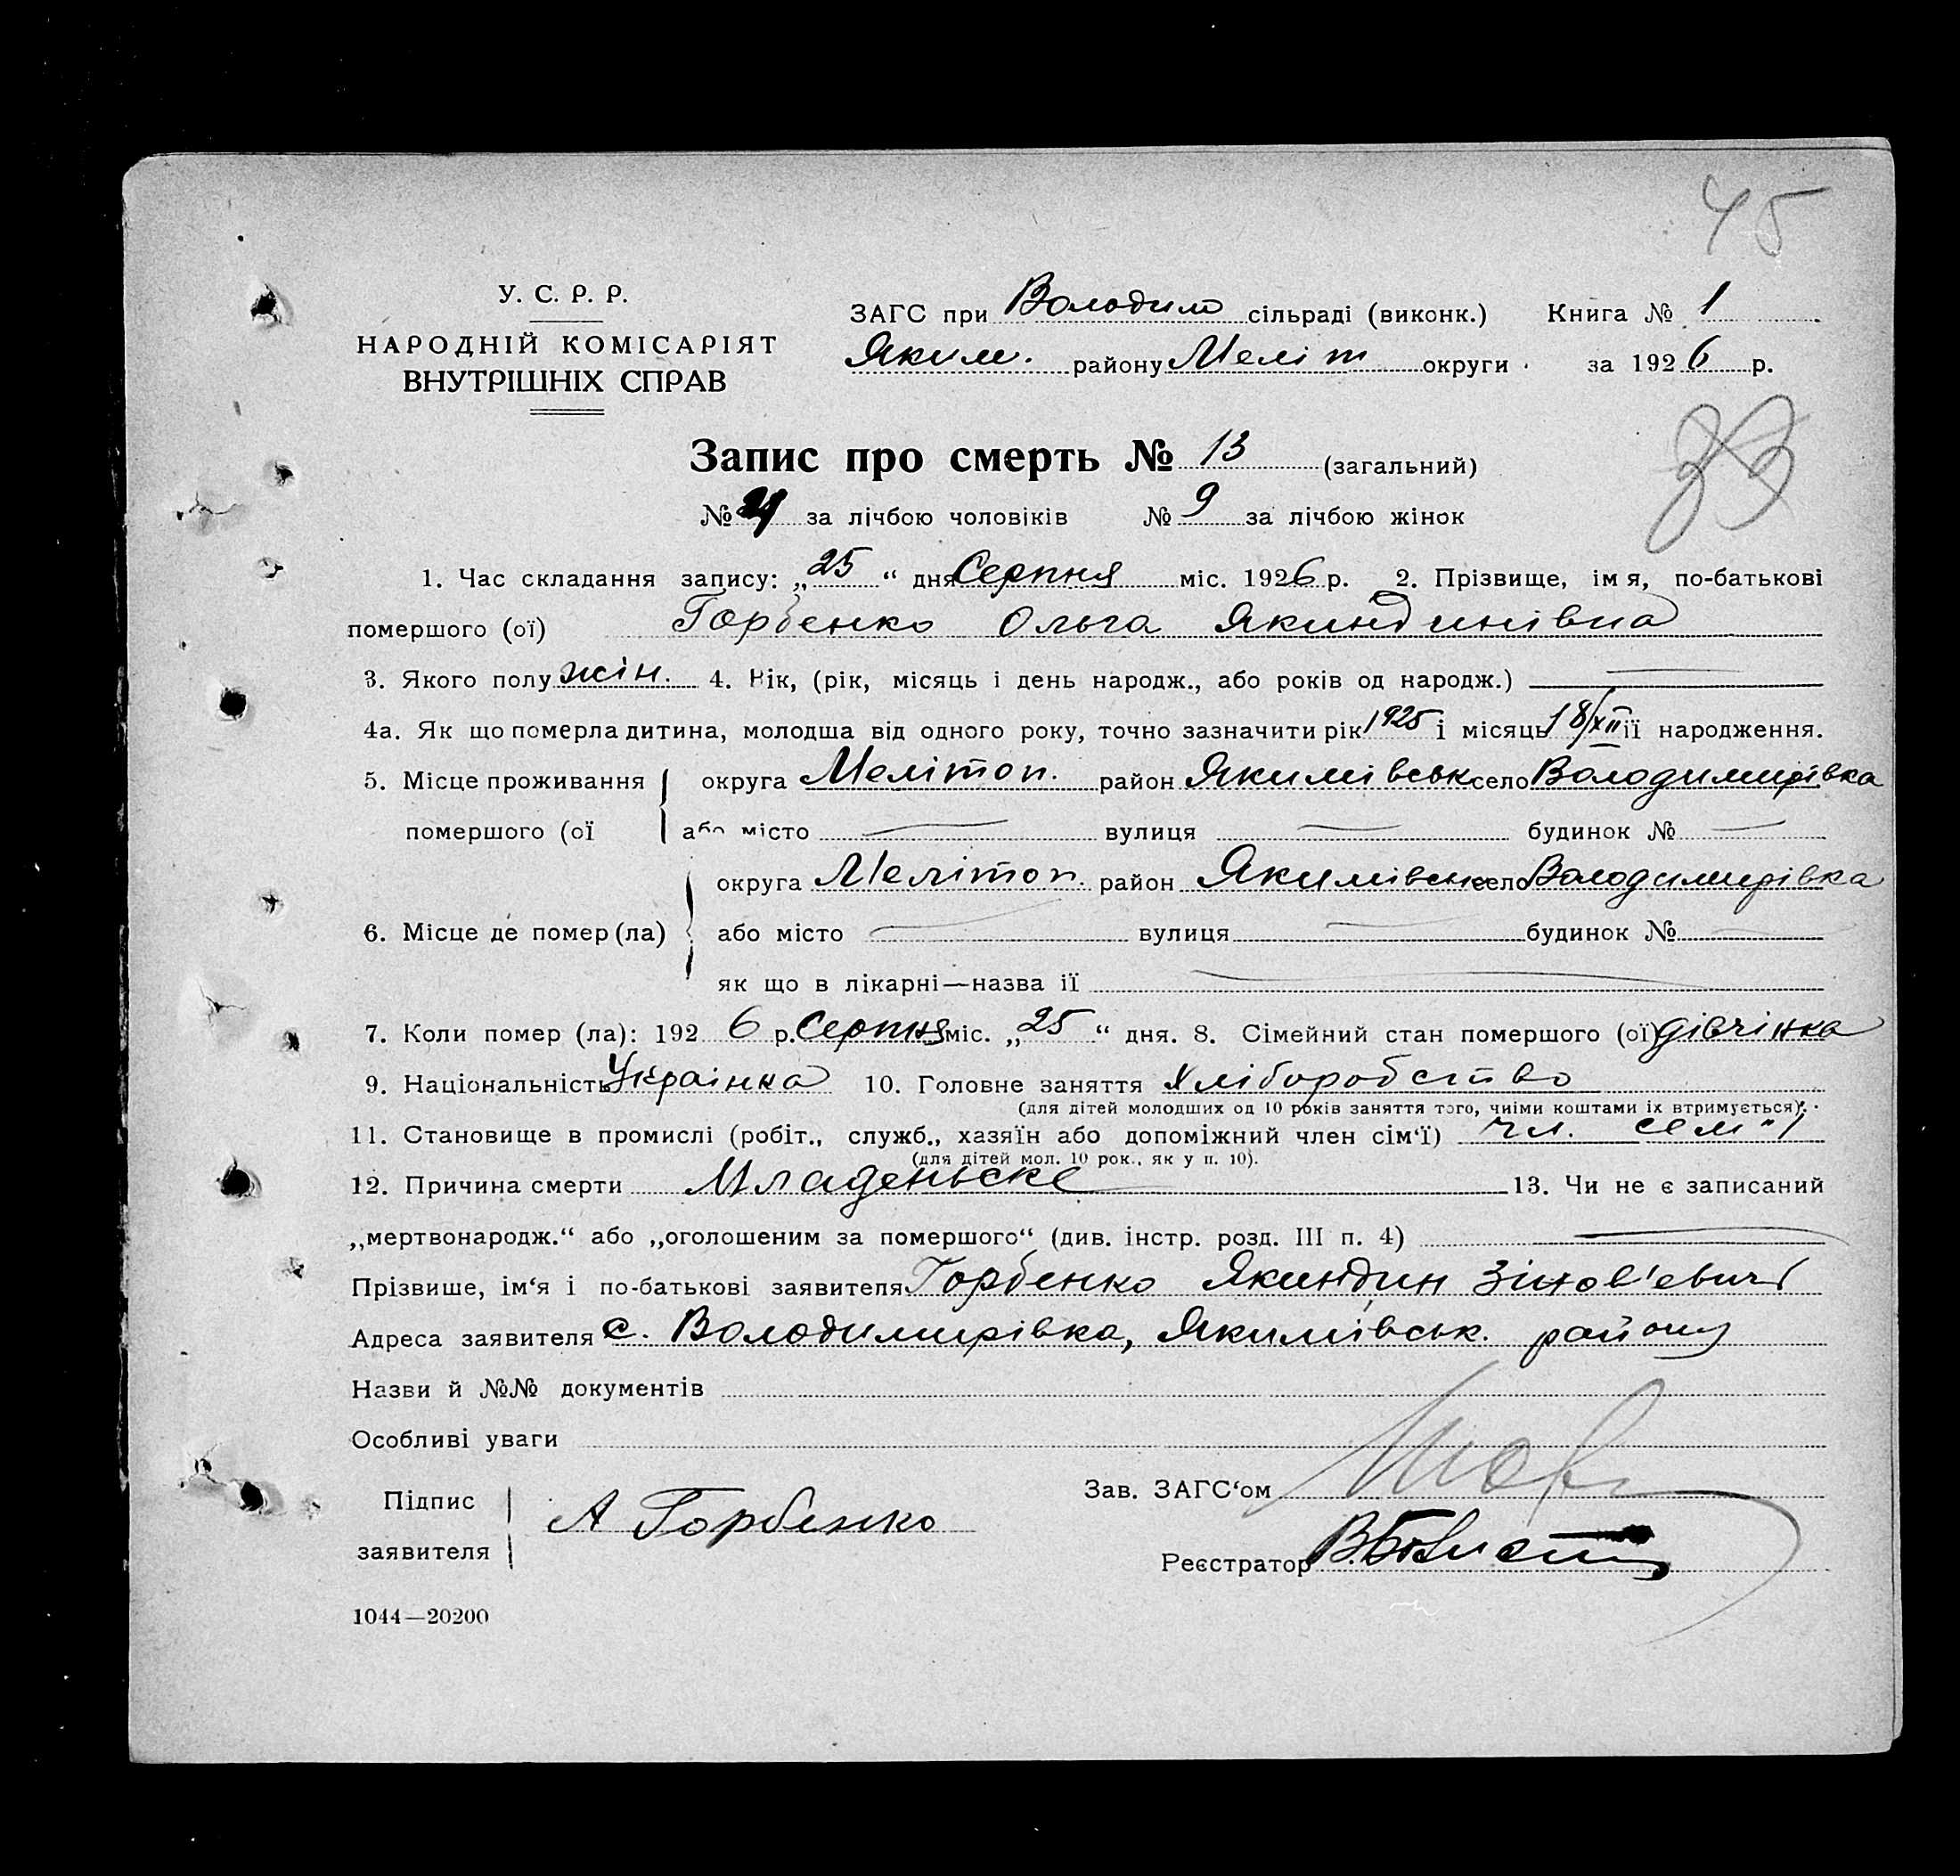 45
У. С. Р. Р.
НАРОДНІЙ КОМІСАРІЯТ
ВНУТРІШНІХ СПРАВ
ЗАГС при Володим сільраді (виконк.) Книга № 1
Яким. району Меліт округи за 1926 р.
33
Запис про смерть № 13 (загальний)
№ за лічбою чоловіків № 9 за лічбою жінок
1. Час складання запису: „25“ дня Серпня міс. 1926 р. 2. Прізвище, імя, по-батькові
помершого (ої) Горбенко Ольга Якиндинівна
3. Якого полу жін. 4. Вік, (рік, місяць і день народж., або років од народж.) —
4а. Як що померла дитина, молодша від одного року, точно зазначити рік 1925 і місяць 18/XII її народження.
5. Місце проживання округа Мелітоп. район Якимівськ село Володимирівка
помершого (ої або місто — вулиця — будинок № —
округа Мелітоп. район Якимівськ село Володимирівка
6. Місце де помер (ла) або місто — вулиця — будинок № —
як що в лікарні—назва її —
7. Коли помер (ла): 1926 р. Серпня міс. „25“ дня. 8. Сімейний стан помершого (ої) дівчінка
9. Національність Украінка 10. Головне заняття Хліборобство
(для дітей молодших од 10 років заняття того, чиїми коштами їх втримується).
11. Становище в промислі (робіт., служб., хазяїн або допоміжний член сім‘ї) чл. сем"ї
(для дітей мол. 10 рок., як у п. 10).
12. Причина смерти Младеньске 13. Чи не є записаний
„мертвонародж.“ або „оголошеним за помершого“ (див. інстр. розд. III п. 4) —
Прізвише, ім‘я і по-батькові заявителя Горбенко Якиндин Зінов'евич
Адреса заявителя с. Володимирівка, Якимівськ. району
Назви й №№ документів
Особливі уваги
Підпис
заявителя А Горбенко
Зав. ЗАГС‘ом
Реєстратор
1044—20200